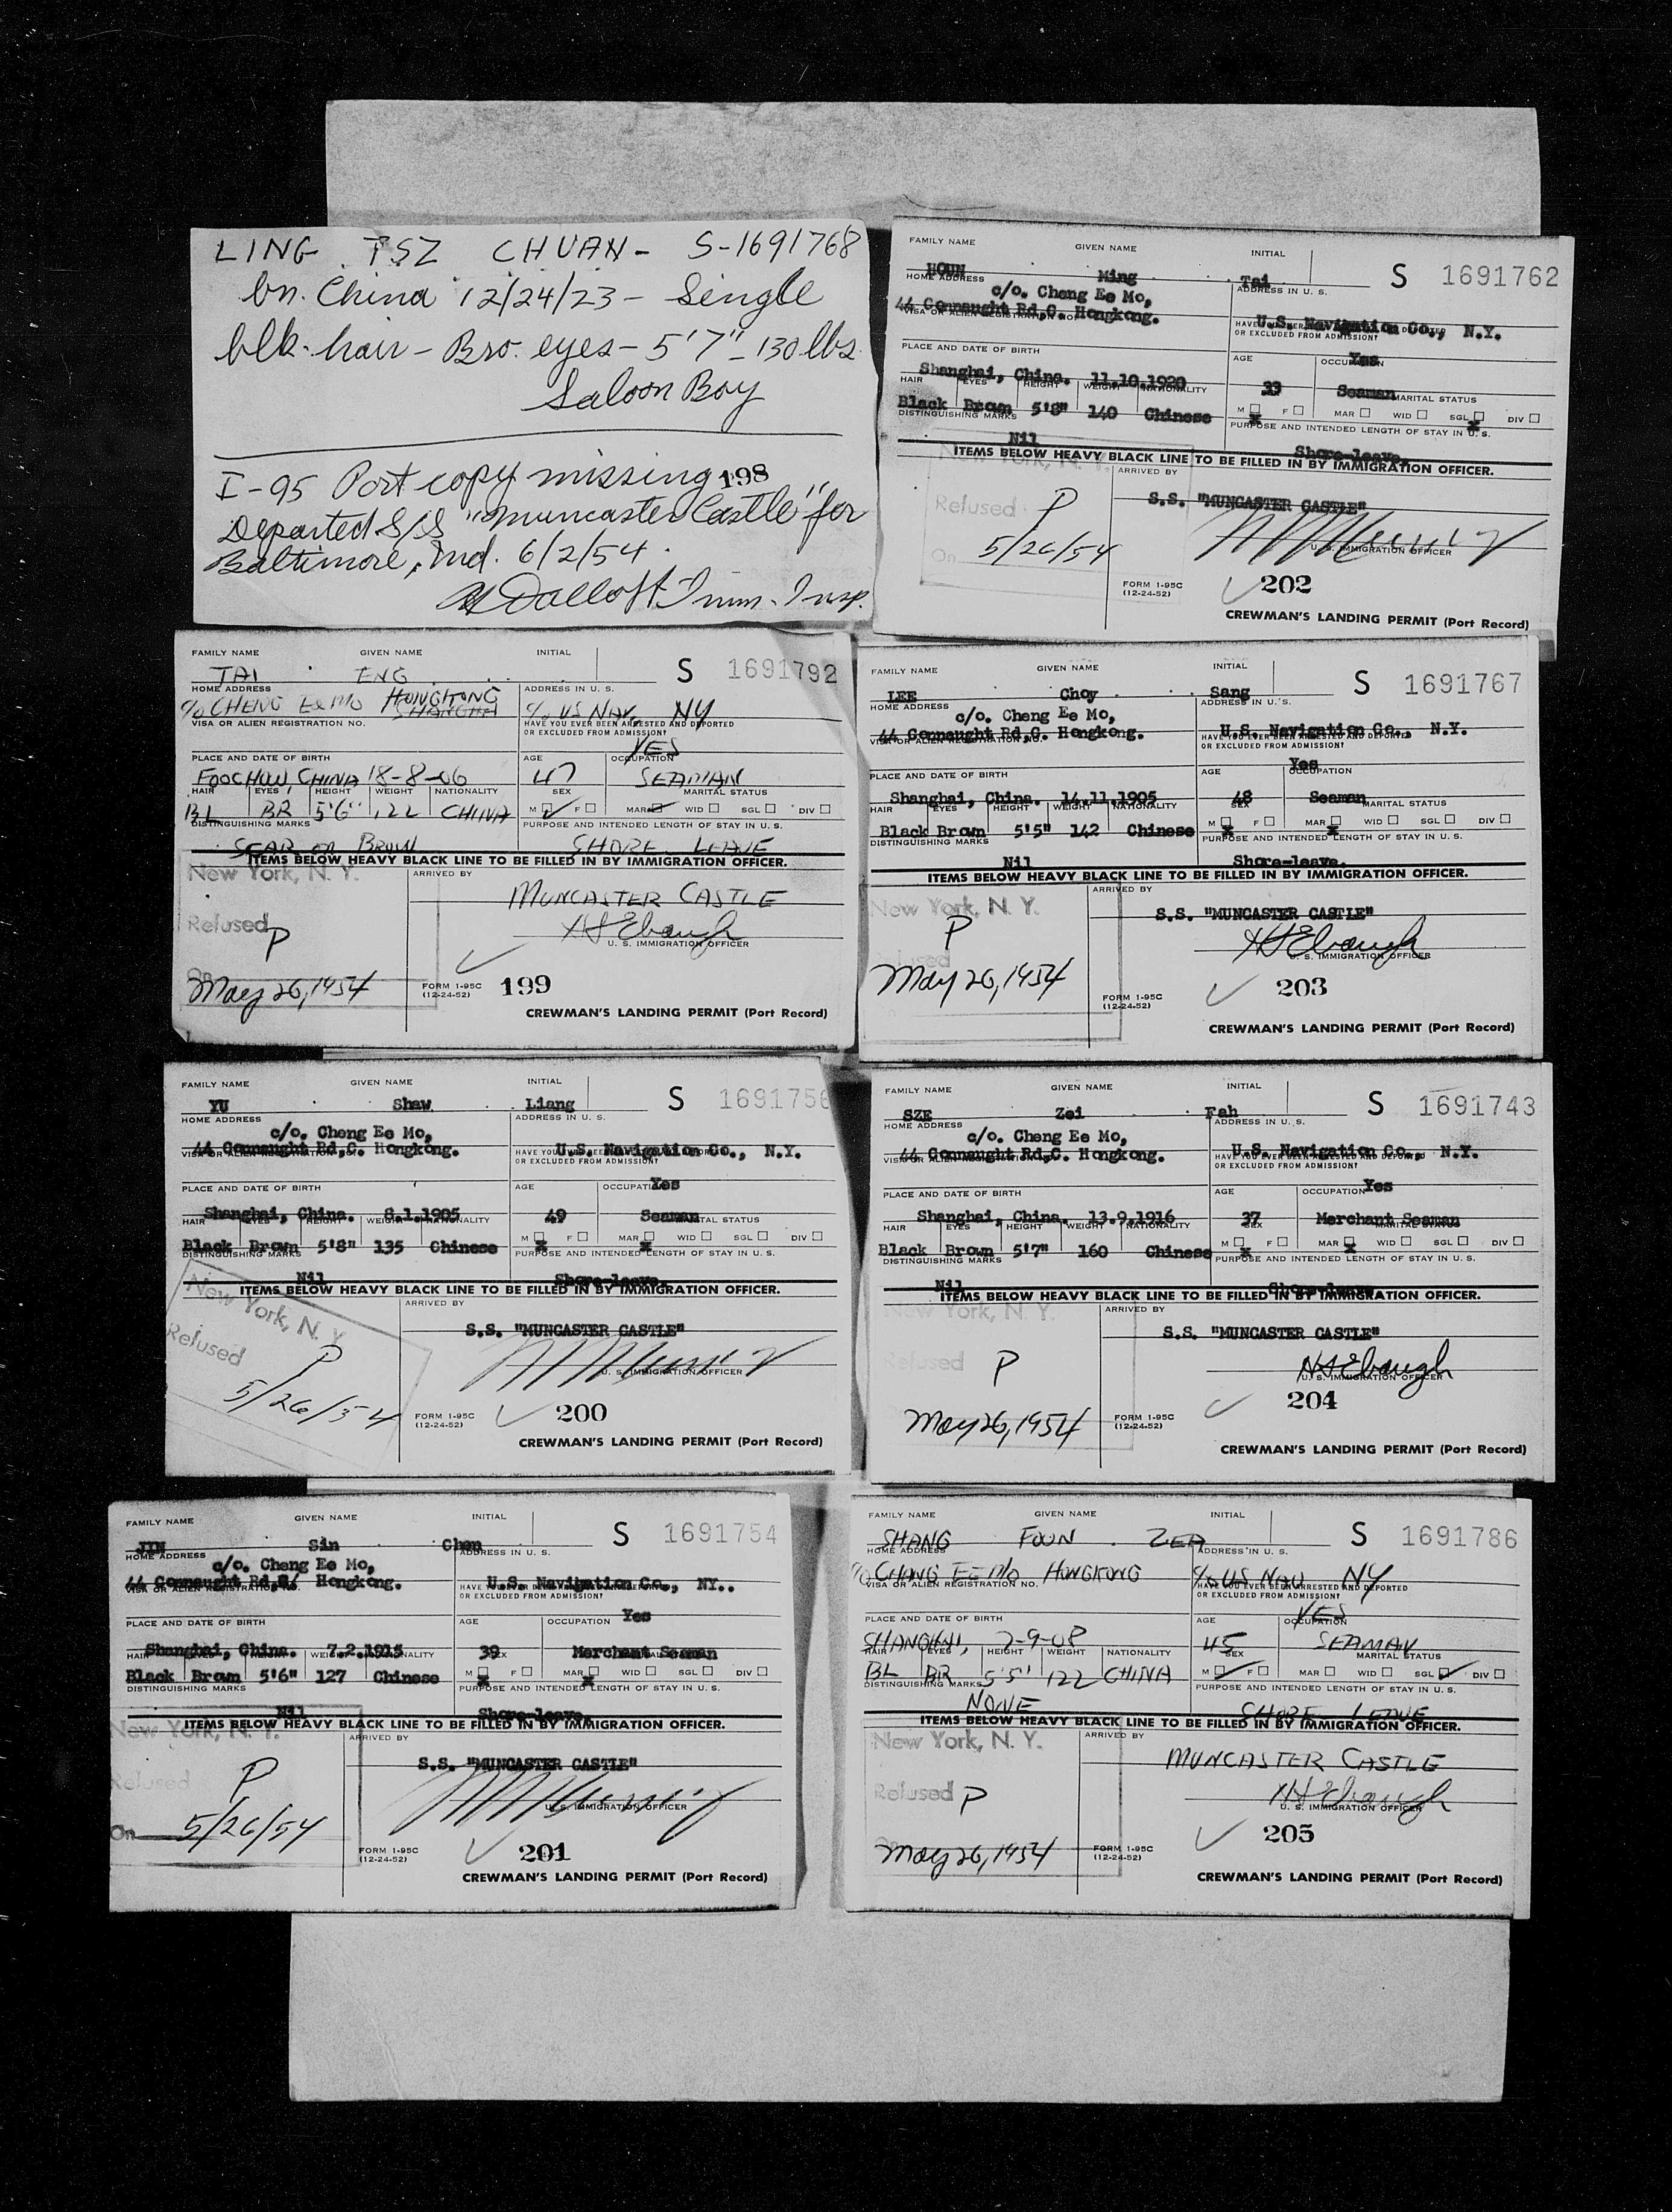 LING TSZ CHUAN - S-1691768
bn. China 12/24/23 - Single
blk. hair - Bro. eyes - 5'7" - 130 lbs.
Saloon Boy
I-95 Port copy missing 198
Departed S/S "Muncaster Castle" for
Baltimore, Md. 6/2/54.
Imm. Insp.
FAMILY NAME GIVEN NAME INITIAL
TAI ENG S 1691792
HOME ADDRESS ADDRESS IN U. S.
c/o CHENG EE MO HONGKONG SHANGHAI c/o US NAV. NY
VISA OR ALIEN REGISTRATION NO. HAVE YOU EVER BEEN ARRESTED AND DEPORTED
OR EXCLUDED FROM ADMISSION?
YES
PLACE AND DATE OF BIRTH AGE OCCUPATION
FOOCHOW, CHINA 18-8-06 47 SEAMAN
HAIR EYES HEIGHT WEIGHT NATIONALITY SEX MARITAL STATUS
BL BR 5'6" 122 CHINA M F MAR WID SGL DIV
DISTINGUISHING MARKS PURPOSE AND INTENDED LENGTH OF STAY IN U. S.
SCAR ON BROW SHORE LEAVE
ITEMS BELOW HEAVY BLACK LINE TO BE FILLED IN BY IMMIGRATION OFFICER.
New York, N. Y. ARRIVED BY
MUNCASTER CASTLE
Refused P H S Ebaugh
U. S. IMMIGRATION OFFICER
On May 26, 1954 FORM I-95C 199
(12-24-52)
CREWMAN'S LANDING PERMIT (Port Record)
FAMILY NAME GIVEN NAME INITIAL
YU Shaw Liang S 1691756
HOME ADDRESS ADDRESS IN U. S.
c/o. Cheng Ee Mo,
44 Connaught Rd,C. Hongkong. U.S. Navigation Co., N.Y.
VISA OR ALIEN REGISTRATION NO. HAVE YOU EVER BEEN ARRESTED AND DEPORTED
OR EXCLUDED FROM ADMISSION?
Yes
PLACE AND DATE OF BIRTH AGE OCCUPATION
Shanghai, China. 8.1.1905 49 Seaman
HAIR EYES HEIGHT WEIGHT NATIONALITY SEX MARITAL STATUS
Black Brown 5'8" 135 Chinese M x F MAR x WID SGL DIV
DISTINGUISHING MARKS PURPOSE AND INTENDED LENGTH OF STAY IN U. S.
Nil Shore-leave.
ITEMS BELOW HEAVY BLACK LINE TO BE FILLED IN BY IMMIGRATION OFFICER.
New York, N. Y. ARRIVED BY
S.S. "MUNCASTER CASTLE"
Refused P
U. S. IMMIGRATION OFFICER
5/26/54 FORM I-95C 200
(12-24-52)
CREWMAN'S LANDING PERMIT (Port Record)
FAMILY NAME GIVEN NAME INITIAL
JIN Sin Chen S 1691754
HOME ADDRESS ADDRESS IN U. S.
c/o. Cheng Ee Mo,
44 Connaught Rd,C/ Hongkong. U.S. Navigation Co., NY..
VISA OR ALIEN REGISTRATION NO. HAVE YOU EVER BEEN ARRESTED AND DEPORTED
OR EXCLUDED FROM ADMISSION?
Yes
PLACE AND DATE OF BIRTH AGE OCCUPATION
Shanghai, China. 7.2.1915 39 Merchant Seaman
HAIR EYES HEIGHT WEIGHT NATIONALITY SEX MARITAL STATUS
Black Brown 5'6" 127 Chinese M x F MAR x WID SGL DIV
DISTINGUISHING MARKS PURPOSE AND INTENDED LENGTH OF STAY IN U. S.
Nil Shore-leave.
ITEMS BELOW HEAVY BLACK LINE TO BE FILLED IN BY IMMIGRATION OFFICER.
New York, N. Y. ARRIVED BY
S.S. "MUNCASTER CASTLE"
Refused P
U. S. IMMIGRATION OFFICER
On 5/26/54 FORM I-95C 201
(12-24-52)
CREWMAN'S LANDING PERMIT (Port Record)
FAMILY NAME GIVEN NAME INITIAL
HOUN Ming Tai S 1691762
HOME ADDRESS ADDRESS IN U. S.
c/o. Cheng Ee Mo,
44 Connaught Rd,C. Hongkong. U.S. Navigation Co., N.Y.
VISA OR ALIEN REGISTRATION NO. HAVE YOU EVER BEEN ARRESTED AND DEPORTED
OR EXCLUDED FROM ADMISSION?
Yes
PLACE AND DATE OF BIRTH AGE OCCUPATION
Shanghai, China. 11.10.1920 33 Seaman
HAIR EYES HEIGHT WEIGHT NATIONALITY MARITAL STATUS
Black Brown 5'8" 140 Chinese M x F MAR WID SGL x DIV
DISTINGUISHING MARKS PURPOSE AND INTENDED LENGTH OF STAY IN U. S.
Nil Shore-leave.
ITEMS BELOW HEAVY BLACK LINE TO BE FILLED IN BY IMMIGRATION OFFICER.
New York, N. Y. ARRIVED BY
S.S. "MUNCASTER CASTLE"
Refused P
U. S. IMMIGRATION OFFICER
On 5/26/54
FORM I-95C 202
(12-24-52)
CREWMAN'S LANDING PERMIT (Port Record)
FAMILY NAME GIVEN NAME INITIAL
LEE Choy Sang S 1691767
HOME ADDRESS ADDRESS IN U. S.
c/o. Cheng Ee Mo,
44 Connaught Rd,C. Hongkong. U.S. Navigation Co., N.Y.
VISA OR ALIEN REGISTRATION NO. HAVE YOU EVER BEEN ARRESTED AND DEPORTED
OR EXCLUDED FROM ADMISSION?
Yes
PLACE AND DATE OF BIRTH AGE OCCUPATION
Shanghai, China. 14.11.1905 48 Seaman
HAIR EYES HEIGHT WEIGHT NATIONALITY SEX MARITAL STATUS
Black Brown 5'5" 142 Chinese M x F MAR x WID SGL DIV
DISTINGUISHING MARKS PURPOSE AND INTENDED LENGTH OF STAY IN U. S.
Nil Shore-leave.
ITEMS BELOW HEAVY BLACK LINE TO BE FILLED IN BY IMMIGRATION OFFICER.
New York, N. Y. ARRIVED BY
P S.S. "MUNCASTER CASTLE"
Refused H S Ebaugh
U. S. IMMIGRATION OFFICER
May 26, 1954 FORM I-95C 203
(12-24-52)
CREWMAN'S LANDING PERMIT (Port Record)
FAMILY NAME GIVEN NAME INITIAL
SZE Zei Fah S 1691743
HOME ADDRESS ADDRESS IN U. S.
c/o. Cheng Ee Mo,
44 Connaught Rd,C. Hongkong. U.S. Navigation Co., N.Y.
VISA OR ALIEN REGISTRATION NO. HAVE YOU EVER BEEN ARRESTED AND DEPORTED
OR EXCLUDED FROM ADMISSION?
Yes
PLACE AND DATE OF BIRTH AGE OCCUPATION
Shanghai, China. 13.9.1916 37 Merchant Seaman
HAIR EYES HEIGHT WEIGHT NATIONALITY SEX MARITAL STATUS
Black Brown 5'7" 160 Chinese M x F MAR x WID SGL DIV
DISTINGUISHING MARKS PURPOSE AND INTENDED LENGTH OF STAY IN U. S.
Nil Shore-leave.
ITEMS BELOW HEAVY BLACK LINE TO BE FILLED IN BY IMMIGRATION OFFICER.
New York, N. Y. ARRIVED BY
S.S. "MUNCASTER CASTLE"
Refused P H S Ebaugh
U. S. IMMIGRATION OFFICER
May 26, 1954 FORM I-95C 204
(12-24-52)
CREWMAN'S LANDING PERMIT (Port Record)
FAMILY NAME GIVEN NAME INITIAL
SHANG FOON ZEA S 1691786
HOME ADDRESS ADDRESS IN U. S.
c/o CHANG EE MO HONGKONG c/o US NAV NY
VISA OR ALIEN REGISTRATION NO. HAVE YOU EVER BEEN ARRESTED AND DEPORTED
OR EXCLUDED FROM ADMISSION?
YES
PLACE AND DATE OF BIRTH AGE OCCUPATION
SHANGHAI, 7-9-08 45 SEAMAN
HAIR EYES HEIGHT WEIGHT NATIONALITY SEX MARITAL STATUS
BL BR 5'5" 122 CHINA M F MAR WID SGL DIV
DISTINGUISHING MARKS PURPOSE AND INTENDED LENGTH OF STAY IN U. S.
NONE SHORE LEAVE
ITEMS BELOW HEAVY BLACK LINE TO BE FILLED IN BY IMMIGRATION OFFICER.
New York, N. Y. ARRIVED BY
MUNCASTER CASTLE
Refused P H S Ebaugh
U. S. IMMIGRATION OFFICER
May 26, 1954 FORM I-95C 205
(12-24-52)
CREWMAN'S LANDING PERMIT (Port Record)